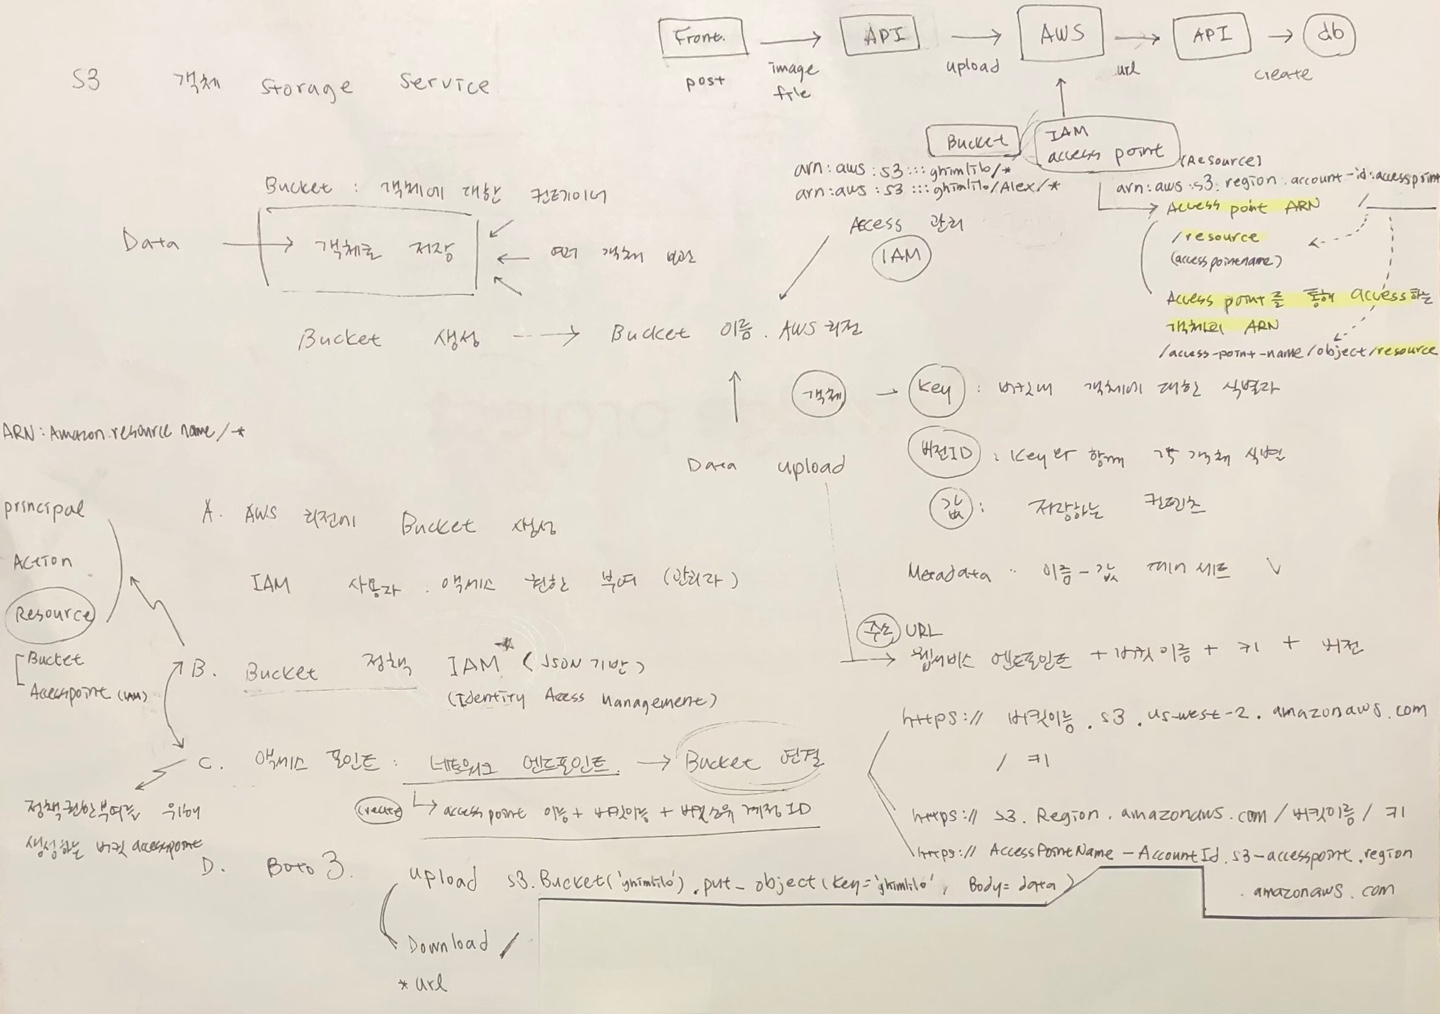 S3 객체 Storage Service
Front. → API → AWS → API → db
post image file upload url create
Bucket
IAM access point
(Resource)
arn:aws:s3:::ghimlilo/*
arn:aws:s3:::ghimlilo/Alex/*
arn:aws:s3.region.account-id:accesspoint
Access point ARN /
/resource
(accesspointname)
Access point를 통해 access하는
객체의 ARN
/access-point-name/object/resource
Bucket : 객체에 대한 컨테이너
Data → 객체를 저장 ← 여러 객체 보관
Access 관리
IAM
Bucket 생성 → Bucket 이름. AWS 리전
Data upload
객체 - Key : 버킷내 객체에 대한 식별자
버전ID : Key와 함께 각 객체 식별
값 : 저장하는 컨텐츠
Metadata : 이름-값 페어 세트
주소 URL
웹서비스 엔드포인트 + 버킷이름 + 키 + 버전
https:// 버킷이름.s3.us-west-2.amazonaws.com
/ 키
https:// s3.Region.amazonaws.com/버킷이름/키
https:// AccessPointName-AccountId.s3-accesspoint.region
.amazonaws.com
ARN: Amazon resource name/*
principal
Action
Resource
Bucket
Accesspoint (IAM)
A. AWS 리전에 Bucket 생성
IAM 사용자. 액세스 권한 부여 (관리자)
B. Bucket 정책 IAM* (JSON 기반)
(Identity Access Management)
C. 액세스 포인트 : 네트워크 엔드포인트 → Bucket 연결
(create) access point 이름 + 버킷이름 + 버킷소유 계정 ID
정책권한부여를 위해
생성하는 버킷 accesspoint
D. Boto 3.
upload s3.Bucket('ghimlilo').put_object(Key='ghimlilo', Body=data)
Download /
* url